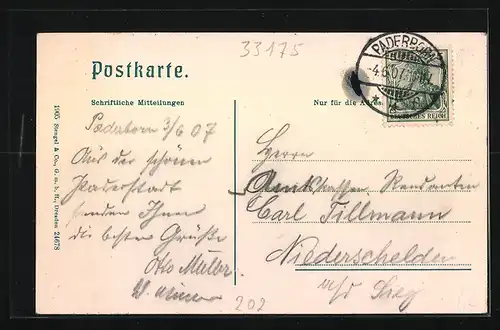 33175
Postkarte.
PADERBORN
-4.6.07
DEUTSCHES REICH
Schriftliche Mitteilungen
Nur für die Adresse
1905 Stengel & Co., G. m. b. H., Dresden 24678
Paderborn 3/6 07
Aus der schönen
Paderstadt
senden Ihnen
die besten Grüße
Otto Müller
Herrn
Amtskassen Rendanten
Carl Tillmann
Niederschelden
a/d Sieg
202